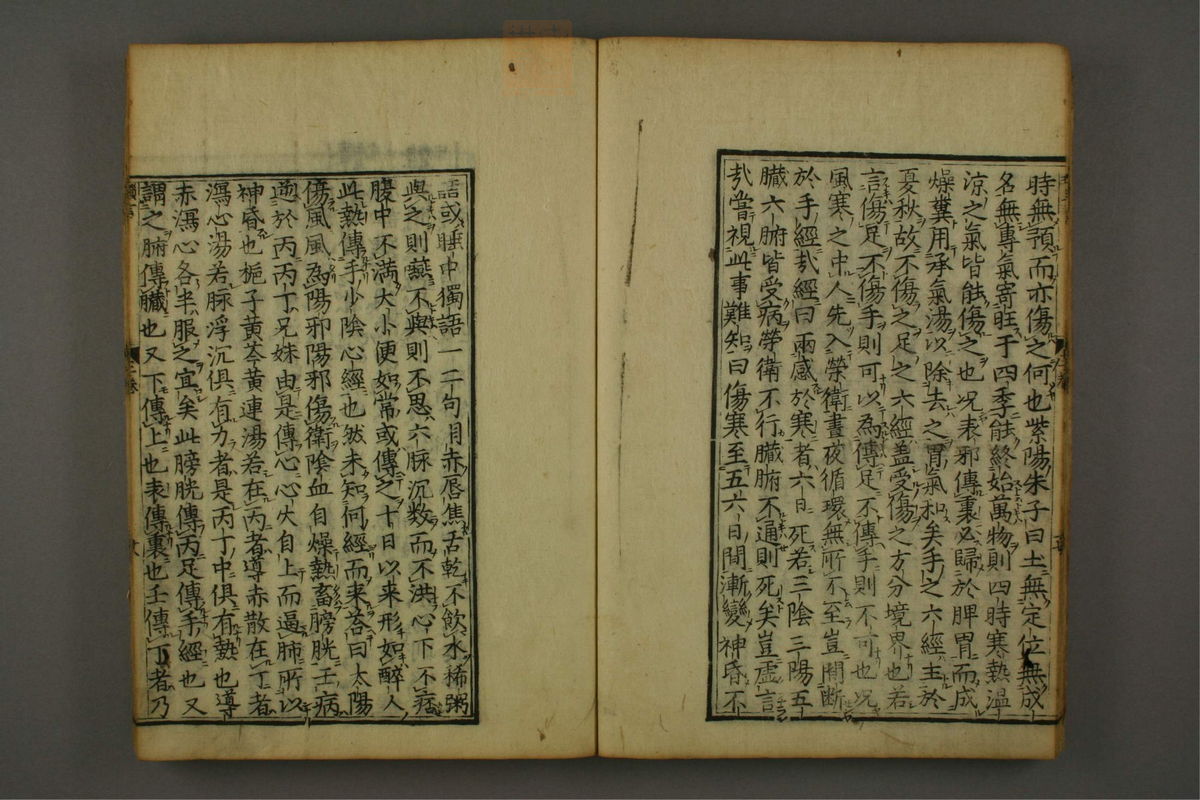 時無預而亦傷之何也紫陽朱子曰土無定位無成
名無專氣寄旺于四季能終始萬物則四時寒熱溫
涼之氣皆能傷之也况表邪傳裏必歸於脾胃而成
燥糞用承氣湯以除去之胃氣和矣手之六經主於
夏秋故不傷之足之六經盖受傷之方分境界也若
言傷足不傷手則可以為傳足不傳手則不可也况
風寒之中人先入榮衛晝夜循環無所不至豈間断
於手經㢤經曰兩感於寒者六日死若三陰三陽五
臓六腑皆受病榮衛不行臓腑不通則死矣豈虚言
㢤嘗視此事難知曰傷寒至五六日間漸變神昏不
語或睡中獨語一二句目赤唇焦舌乾不飲水稀粥
與之則嚥不與則不思六脉沉数而不洪心下不痞
腹中不満大小便如常或傳之十日以来形如醉人
此熱傳手少陰心經也然未知何經而来荅曰太陽
傷風風為陽邪陽邪傷衛陰血自燥熱畜膀胱壬病
逆於丙丙丁兄妹由是傳心心火自上而逼肺所以
神昏也梔子黄芩黄連湯若在丙者導赤散在丁者
瀉心湯若脉浮沉俱有力者是丙丁中俱有熱也導
赤瀉心各半服之宜矣此膀胱傳丙足傳手經也又
謂之腑傳臓也又下傳上也表傳裏也壬傳丁者乃